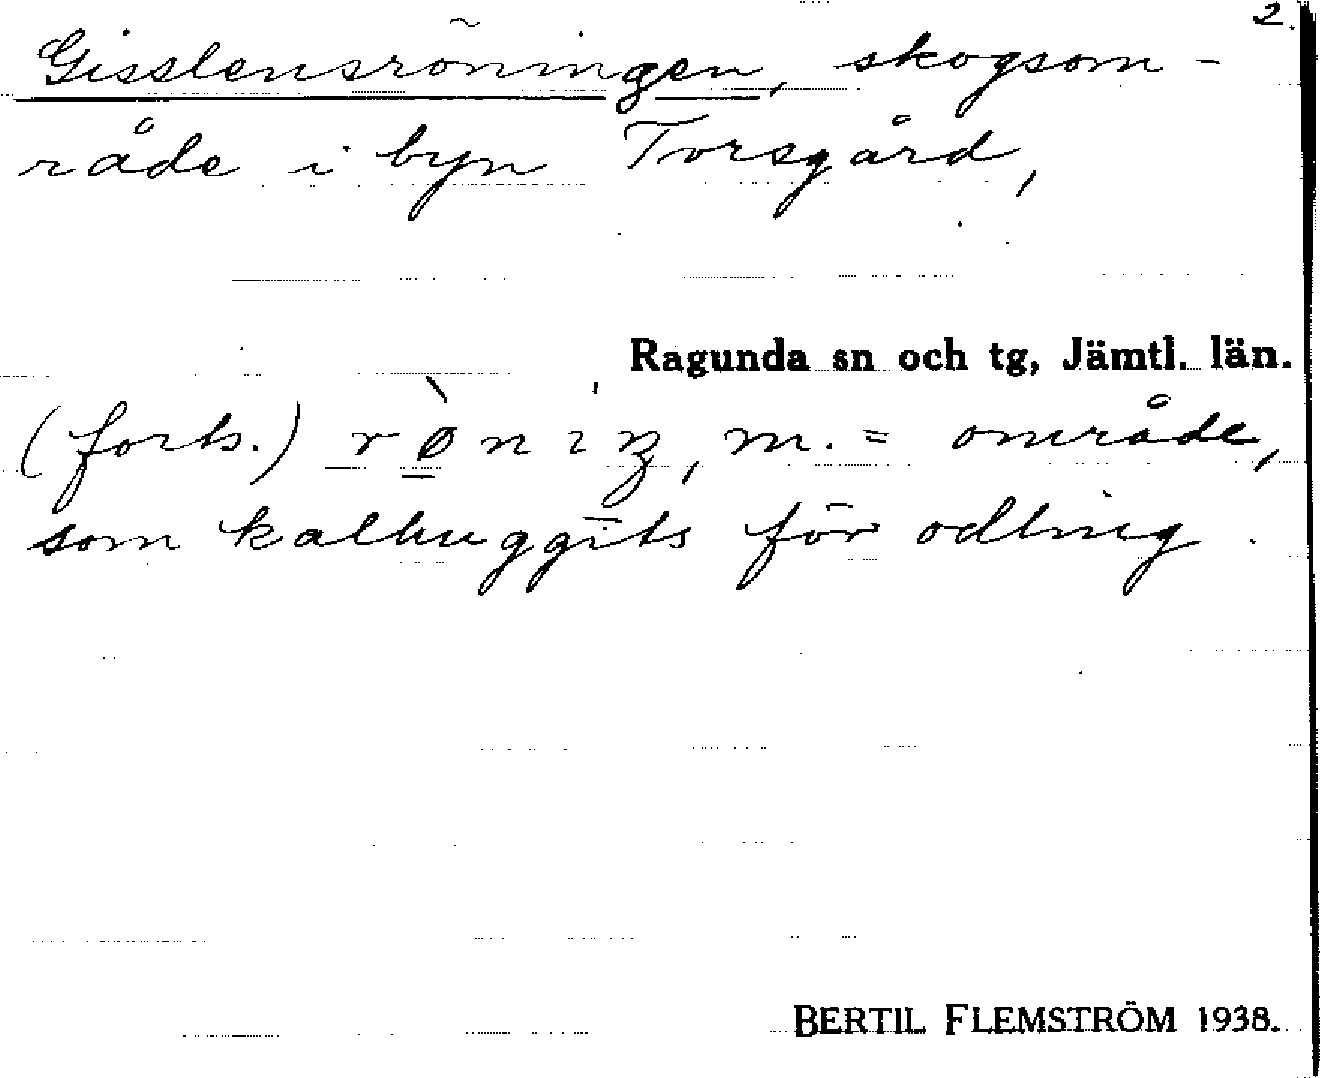 2.
Gisslensröningen, skogsom-
råde i byn Torsgård,
Ragunda sn och tg, Jämtl. län.
(forts.) rø̀niŋ, m. = område,
som kalhuggits för odling.
BERTIL FLEMSTRÖM 1938.